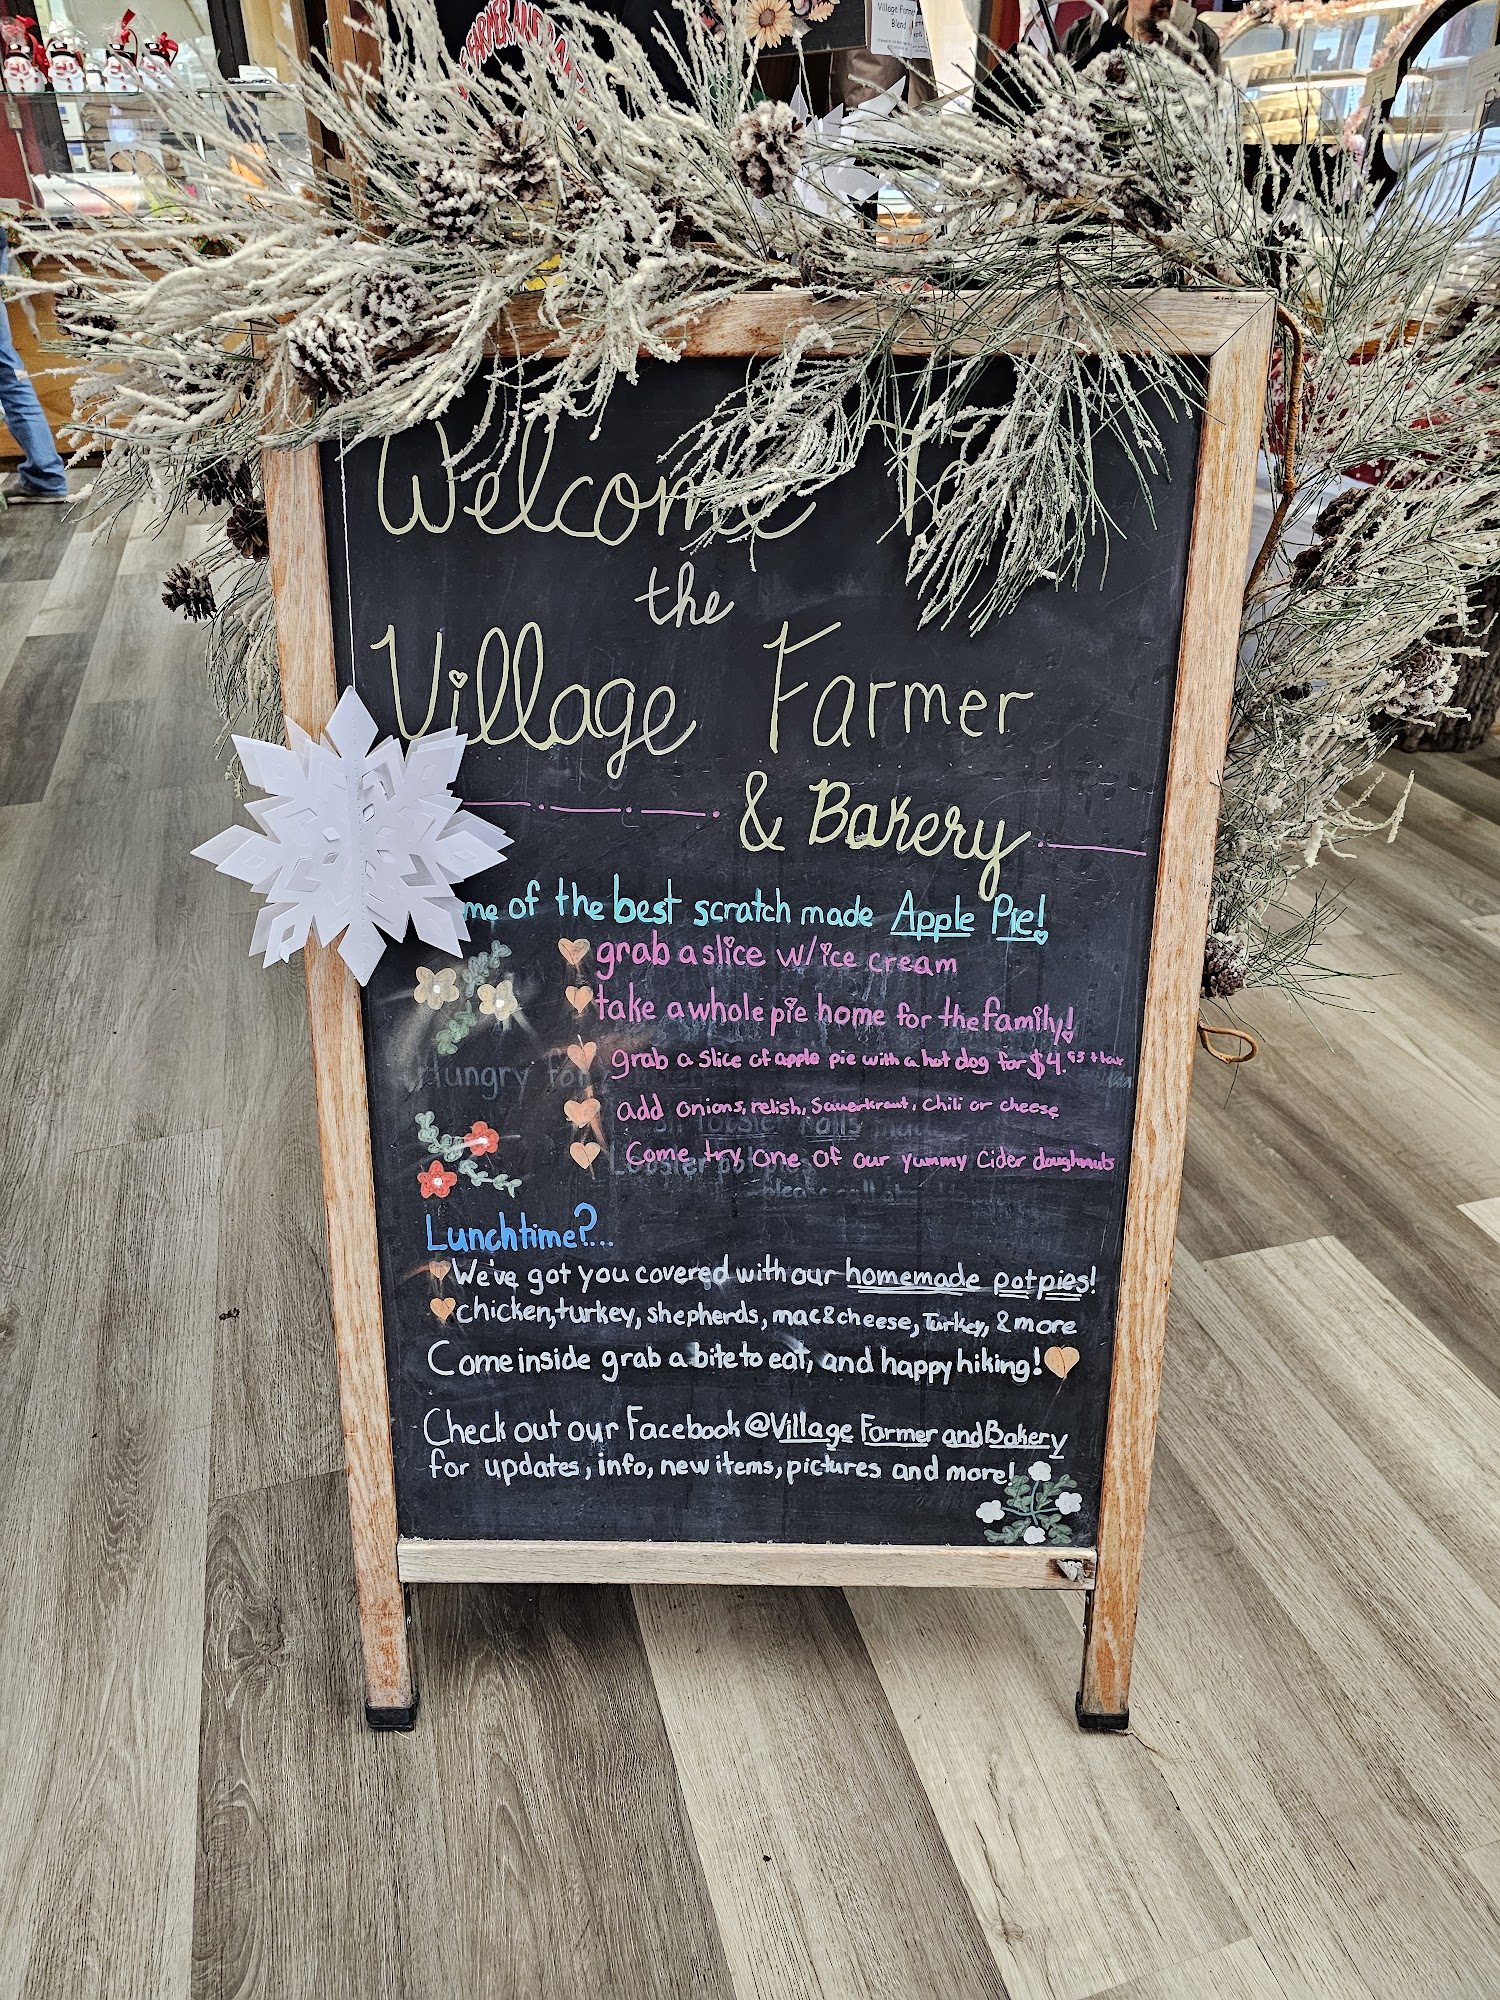 Village Farmer
Blend
Welcome To
the
Village Farmer
& Bakery
me of the best scratch made Apple Pie!
grab a slice w/ice cream
take a whole pie home for the family!
grab a slice of apple pie with a hot dog for $4.
Hungry for
add onions, relish, Sauerkraut, chili or cheese
Come try one of our yummy Cider doughnuts
Lunchtime?...
We've got you covered with our homemade potpies!
chicken, turkey, shepherds, mac&cheese, Turkey, & more
Come inside grab a bite to eat, and happy hiking!
Check out our Facebook @Village Farmer and Bakery
for updates, info, new items, pictures and more!